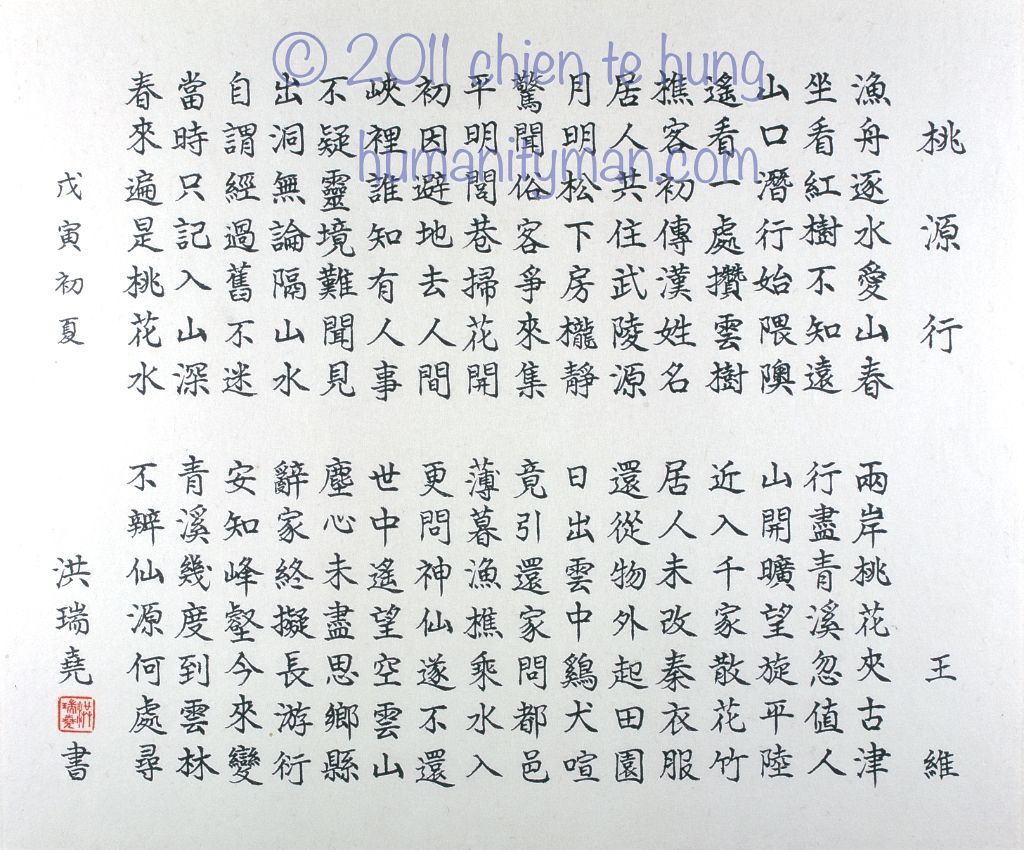 © 2011 chien te hung
humanityman.com
桃源行 王維
漁舟逐水愛山春 兩岸桃花夾古津
坐看紅樹不知遠 行盡青溪忽值人
山口潛行始隈隩 山開曠望旋平陸
遙看一處攢雲樹 近入千家散花竹
樵客初傳漢姓名 居人未改秦衣服
居人共住武陵源 還從物外起田園
月明松下房櫳靜 日出雲中鷄犬喧
驚聞俗客爭來集 竟引還家問都邑
平明閭巷掃花開 薄暮漁樵乘水入
初因避地去人間 更問神仙遂不還
峽裡誰知有人事 世中遙望空雲山
不疑靈境難聞見 塵心未盡思鄉縣
出洞無論隔山水 辭家終擬長游衍
自謂經過舊不迷 安知峰壑今來變
當時只記入山深 青溪幾度到雲林
春來遍是桃花水 不辨仙源何處尋
戊寅初夏 洪瑞堯書
洪瑞堯